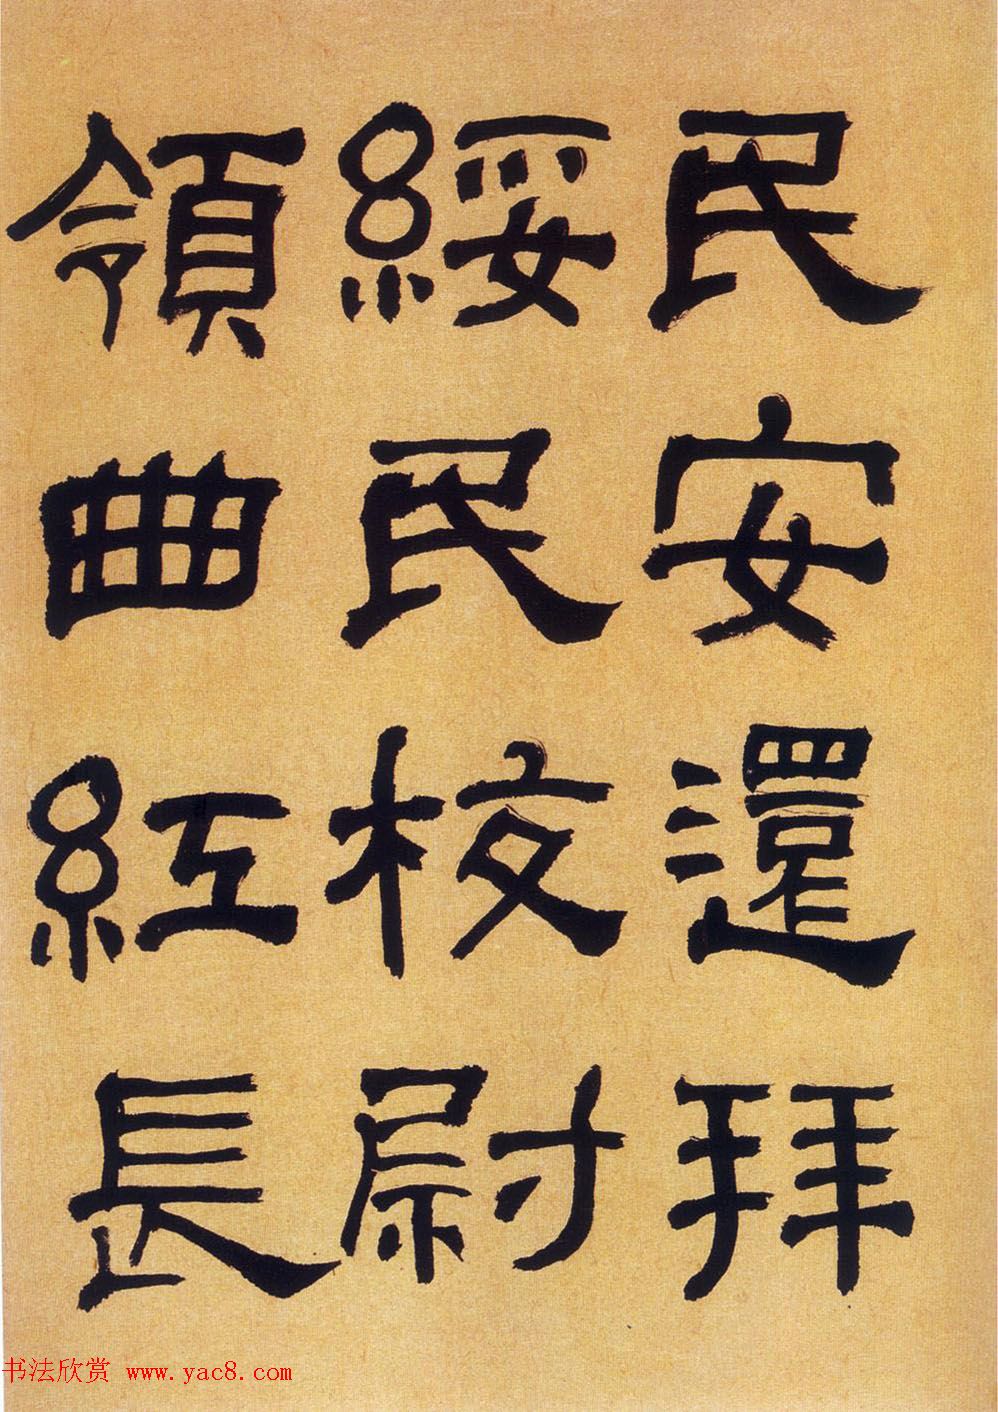 民安還拜
綏民校尉
領曲紅長
书法欣赏 www.yac8.com